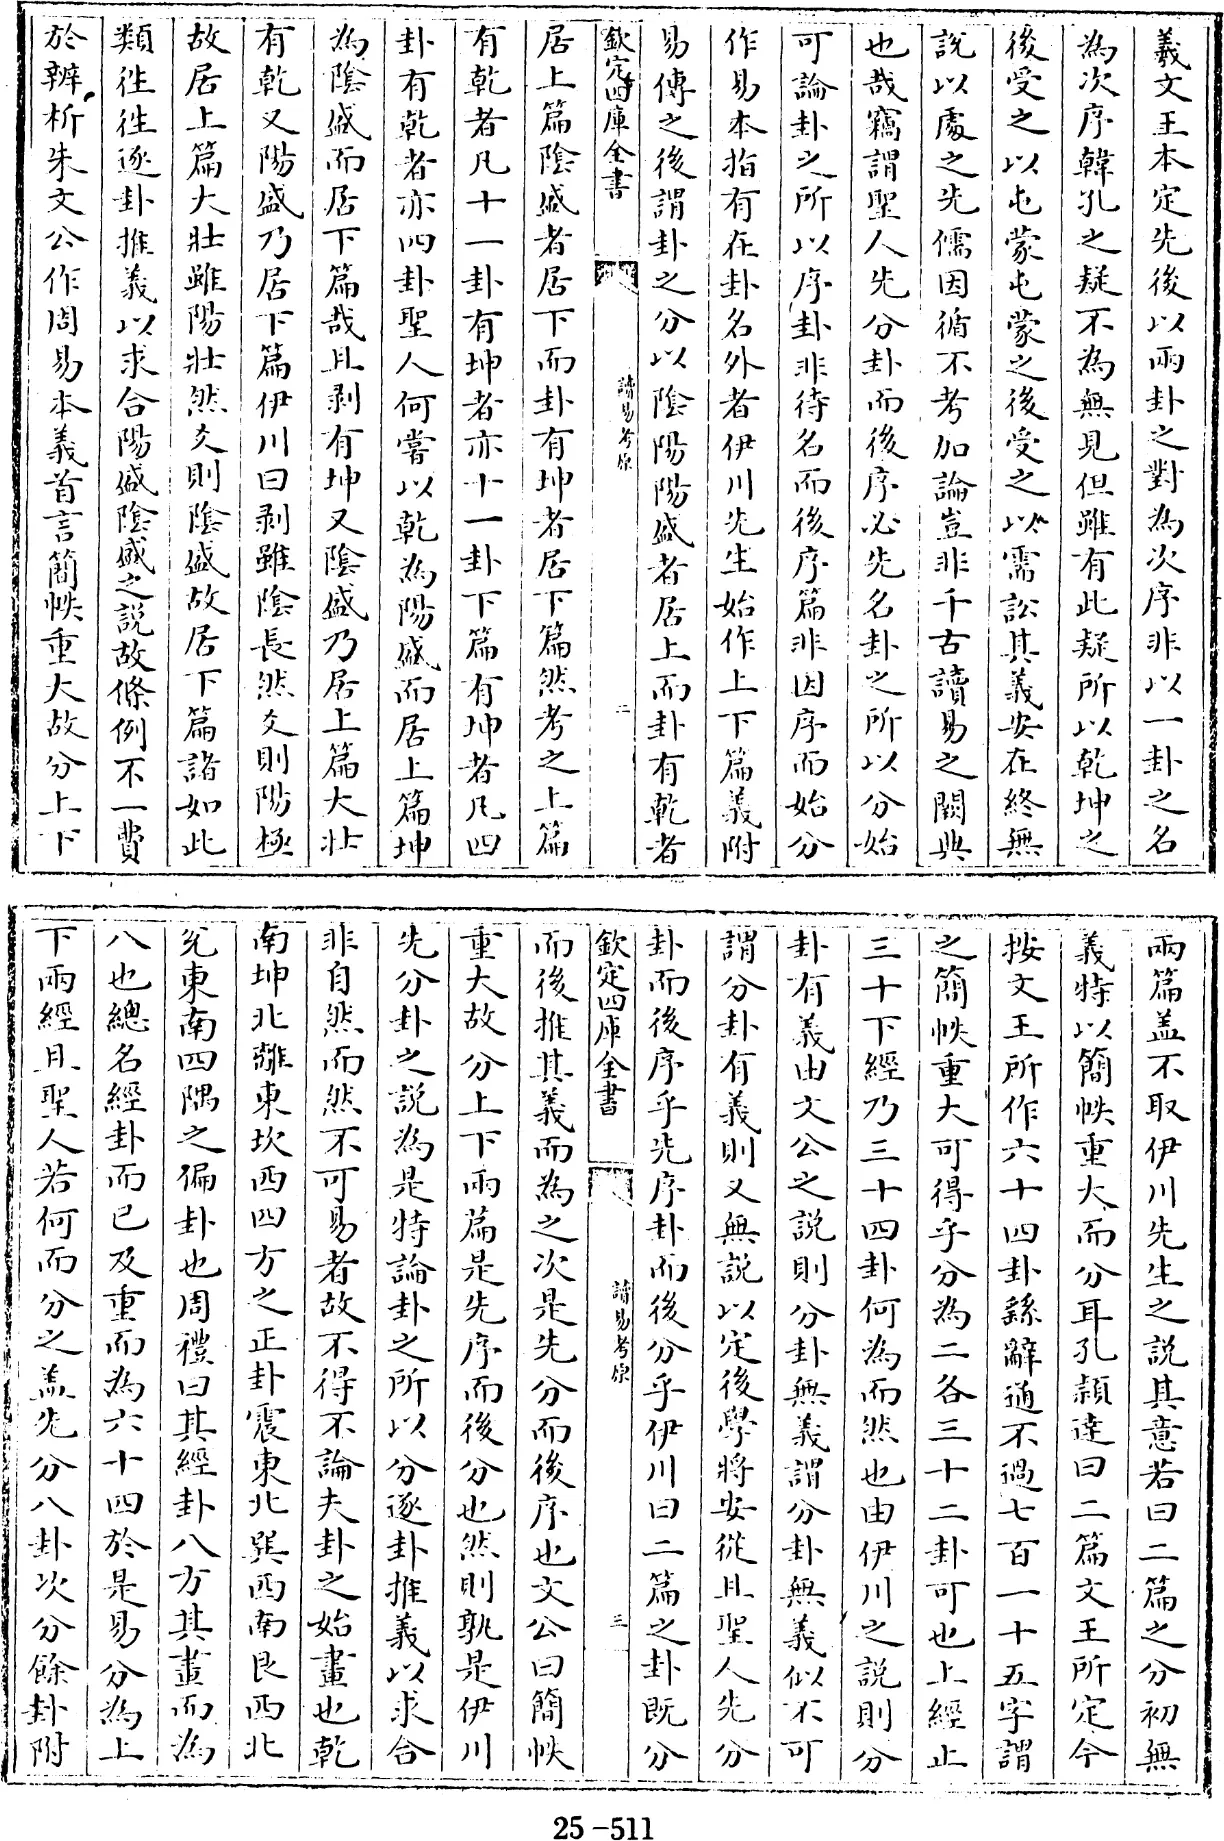 義文王本定先後以兩卦之對為次序非以一卦之名
為次序韓孔之疑不為無見但雖有此疑所以乾坤之
後受之以屯蒙屯蒙之後受之以需訟其義安在終無
說以處之先儒因循不考加論豈非千古讀易之闕典
也哉竊謂聖人先分卦而後序必先名卦之所以分始
可論卦之所以序卦非待名而後序篇非因序而始分
作易本指有在卦名外者伊川先生始作上下篇義附
易傳之後謂卦之分以陰陽陽盛者居上而卦有乾者
欽定四庫全書
讀易考原
二
居上篇陰盛者居下而卦有坤者居下篇然考之上篇
有乾者凡十一卦有坤者亦十一卦下篇有坤者凡四
卦有乾者亦四卦聖人何嘗以乾為陽盛而居上篇坤
為陰盛而居下篇哉且剥有坤又陰盛乃居上篇大壮
有乾又陽盛乃居下篇伊川曰剥雖陰長然爻則陽極
故居上篇大壮雖陽壮然爻則陰盛故居下篇諸如此
類徃徃逐卦推義以求合陽盛陰盛之説故條例不一費
於辨析朱文公作周易本義首言簡帙重大故分上下
兩篇盖不取伊川先生之説其意若曰二篇之分初無
義特以簡帙重大而分耳孔頴逹曰二篇文王所定今
按文王所作六十四卦繇辭通不過七百一十五字謂
之簡帙重大可得乎分為二各三十二卦可也上經止
三十下經乃三十四卦何為而然也由伊川之説則分
卦有義由文公之説則分卦無義謂分卦無義似不可
謂分卦有義則又無説以定後學將安從且聖人先分
卦而後序乎先序卦而後分乎伊川曰二篇之卦既分
欽定四庫全書
讀易考原
三
而後推其義而為之次是先分而後序也文公曰簡帙
重大故分上下兩篇是先序而後分也然則孰是伊川
先分卦之説為是特論卦之所以分逐卦推義以求合
非自然而然不可易者故不得不論夫卦之始畫也乾
南坤北離東坎西四方之正卦震東北巽西南艮西北
兊東南四隅之偏卦也周禮曰其經卦八方其畫而為
八也總名經卦而已及重而為六十四於是易分為上
下兩經且聖人若何而分之盖先分八卦次分餘卦附
25-511